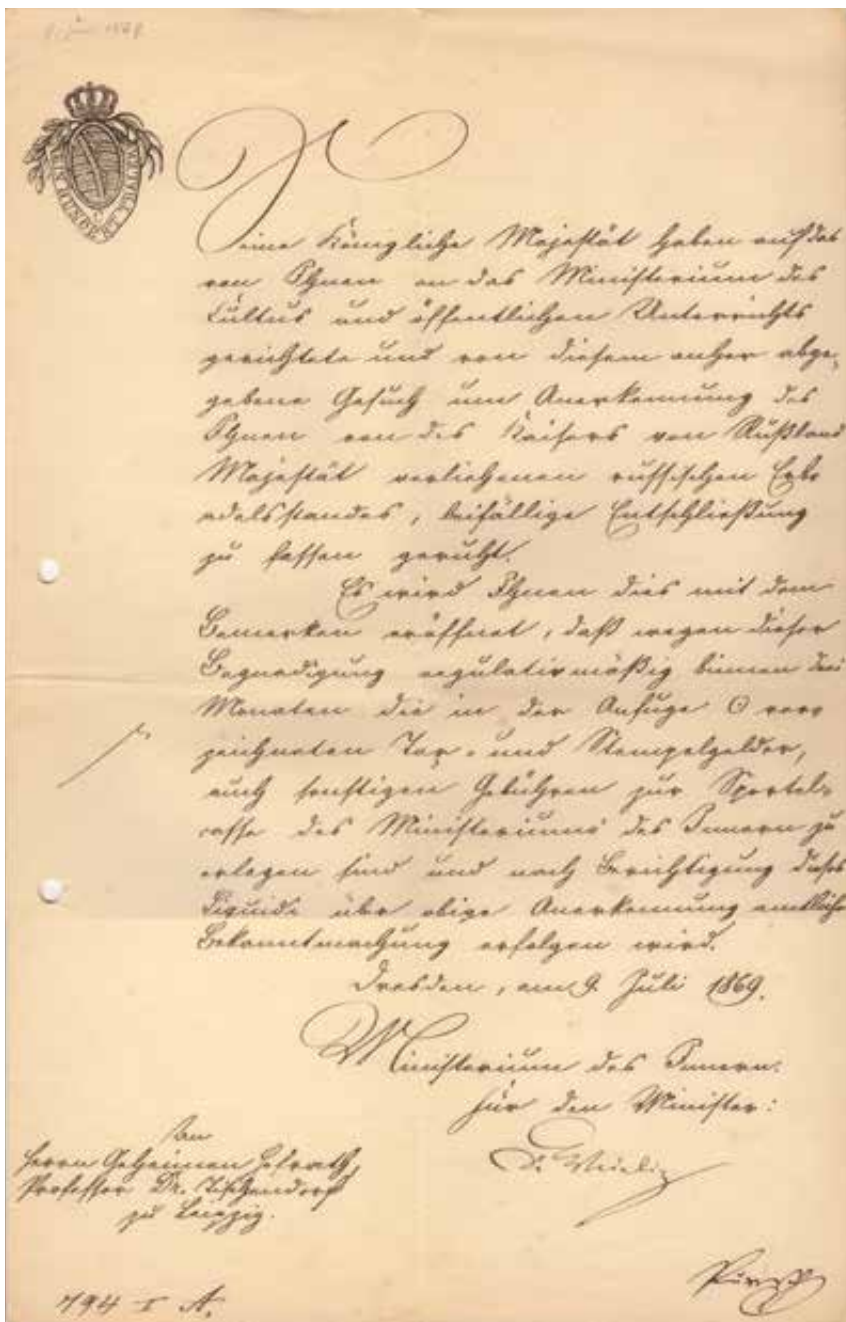 EIN HUNDERT
Seine Königliche Majestät haben auf das
von Ihnen an das Ministerium des
Cultus und öffentlichen Unterrichts
gerichtete und von diesem anher abge-
gebene Gesuch um Anerkennung des
Ihnen von des Kaisers von Rußland
Majestät verliehenen russischen Erb-
adelsstandes, beifällige Entschließung
zu fassen geruht.
Es wird Ihnen dies mit dem
Bemerken eröffnet, daß wegen dieser
Begnadigung regulativmäßig binnen drei
Monaten die in der Anfuge ver-
zeichneten Tax- und Stempelgelder,
auch sonstigen Gebühren zur Sportel-
casse des Ministeriums des Innern zu
erlegen sind und nach Berichtigung dieses
Liquidi über obige Anerkennung amtliche
Bekanntmachung erfolgen wird.
Dresden, am 9. Juli 1869.
Ministerium des Innern.
Für den Minister:
An
Herrn Geheimen Hofrath,
Professor Dr. Tischendorf
zu Leipzig.
794 I A.